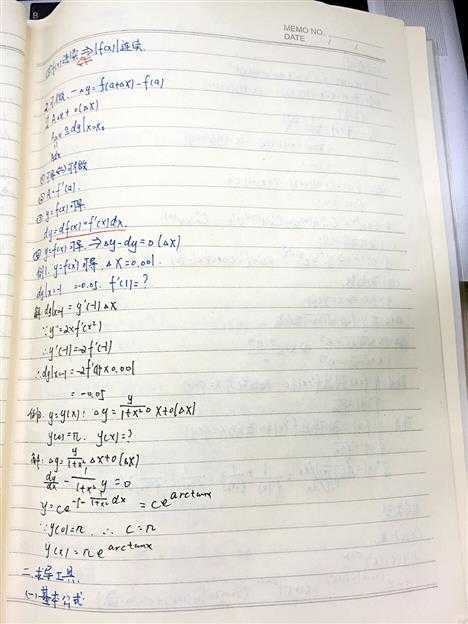 MEMO NO.
DATE / /
⇒|f(x)|连续.
2. 可微. - Δy = f(a+Δx) - f(a)
AΔx + o(Δx)
AΔx ≜ dy|x=x₀
Adx
① 可导⇔可微
② A = f'(a).
③ y=f(x)可导.
dy = df(x) = f'(x)dx.
④ y=f(x)可导. ⇒ Δy-dy = o(Δx)
例1. y=f(x²)可导. Δx=0.001.
dy|x=-1 = -0.05. f'(1)=?
解: dy|x=-1 = y'(-1)Δx
∵y'=2xf'(x²)
∴y'(-1)=-2f'(1)
∴dy|x=-1 = -2f'(1)×0.001
= -0.05
y=y(x): Δy = y/(1+x²) Δx+o(Δx)
y(0)=π. y(x)=?
解: Δy = y/(1+x²) Δx+o(Δx)
dy/dx - 1/(1+x²) y = 0
y = ce^{-∫-1/(1+x²) dx} = ce^{arctanx}
∵y(0)=π. ∴ c=π
y(x)=πe^{arctanx}
二.求导工具
(一)基本公式.